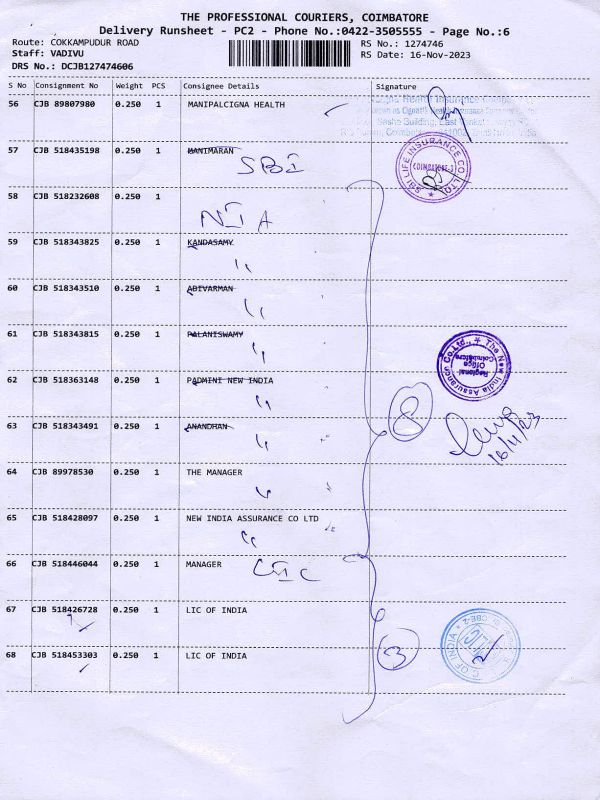 THE PROFESSIONAL COURIERS, COIMBATORE
Delivery Runsheet - PC2 - Phone No.:0422-3505555 - Page No.:6
Route: COKKAMPUDUR ROAD RS No.: 1274746
Staff: VADIVU RS Date: 16-Nov-2023
DRS No.: DCJB127474606
S No Consignment No Weight PCS Consignee Details Signature
56 CJB 89807980 0.250 1 MANIPALCIGNA HEALTH
57 CJB 518435198 0.250 1 MANIMARAN
SBI
SBI LIFE INSURANCE CO. LTD.
58 CJB 518232608 0.250 1
NIA
59 CJB 518343825 0.250 1 KANDASAMY
"
60 CJB 518343510 0.250 1 ADIVARMAN
"
61 CJB 518343815 0.250 1 PALANISWAMY
"
The New India Assurance Co. Ltd.,
Regional Office
Coimbatore
62 CJB 518363148 0.250 1 PADMINI NEW INDIA
"
8
63 CJB 518343491 0.250 1 ANANDHAN
"
16/11/23
64 CJB 89978530 0.250 1 THE MANAGER
"
65 CJB 518428097 0.250 1 NEW INDIA ASSURANCE CO LTD
"
66 CJB 518446044 0.250 1 MANAGER
LIC
67 CJB 518426728 0.250 1 LIC OF INDIA
68 CJB 518453303 0.250 1 LIC OF INDIA
3
OF INDIA